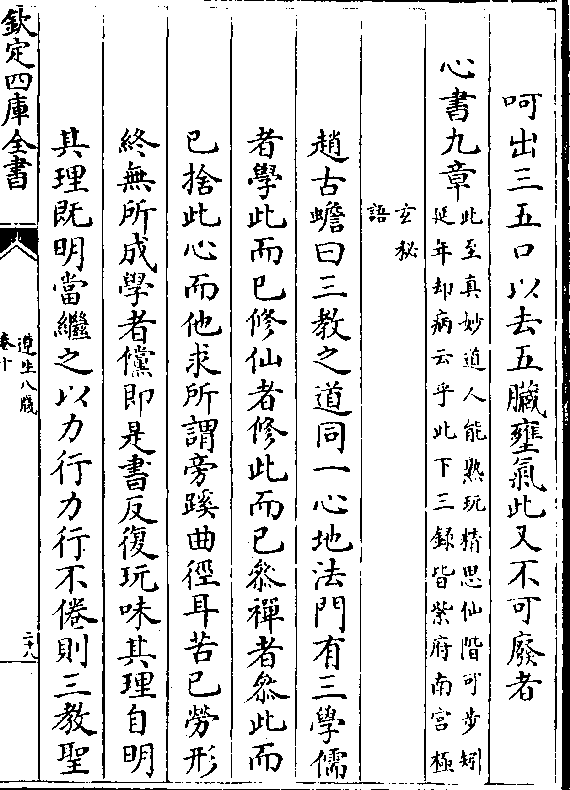 呵出三五口以去五臟壅氣此又不可廢者
心書九章此至真妙道人能熟玩精思仙階可步矧
延年却病云乎此下三錄皆紫府南宫極
玄秘
語
趙古蟾曰三教之道同一心地法門有三學儒
者學此而已修仙者修此而已叅禪者叅此而
已捨此心而他求所謂旁蹊曲徑耳苦已勞形
終無所成學者儻即是書反復玩味其理自明
其理既明當繼之以力行力行不倦則三教聖
欽定四庫全書
遵生八牋
卷十
二十八